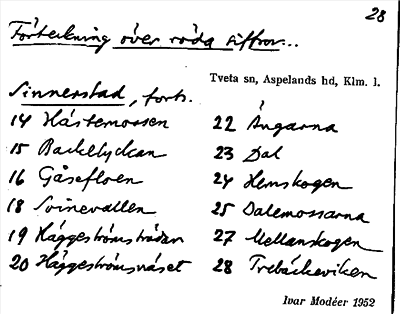 28
Förteckning över röda siffror...
Tveta sn, Aspelands hd, Klm. l.
Sinnerstad, forts.
14 Hästemossen
15 Backelyckan
16 Gåsefloen
18 Svinevallen
19 Häggeströmstrådan
20 Häggeströmsnäset
22 Ängarna
23 Dal
24 Hemskogen
25 Dalemossarna
27 Mellanskogen
28 Trebäckeviken
Ivar Modéer 1952